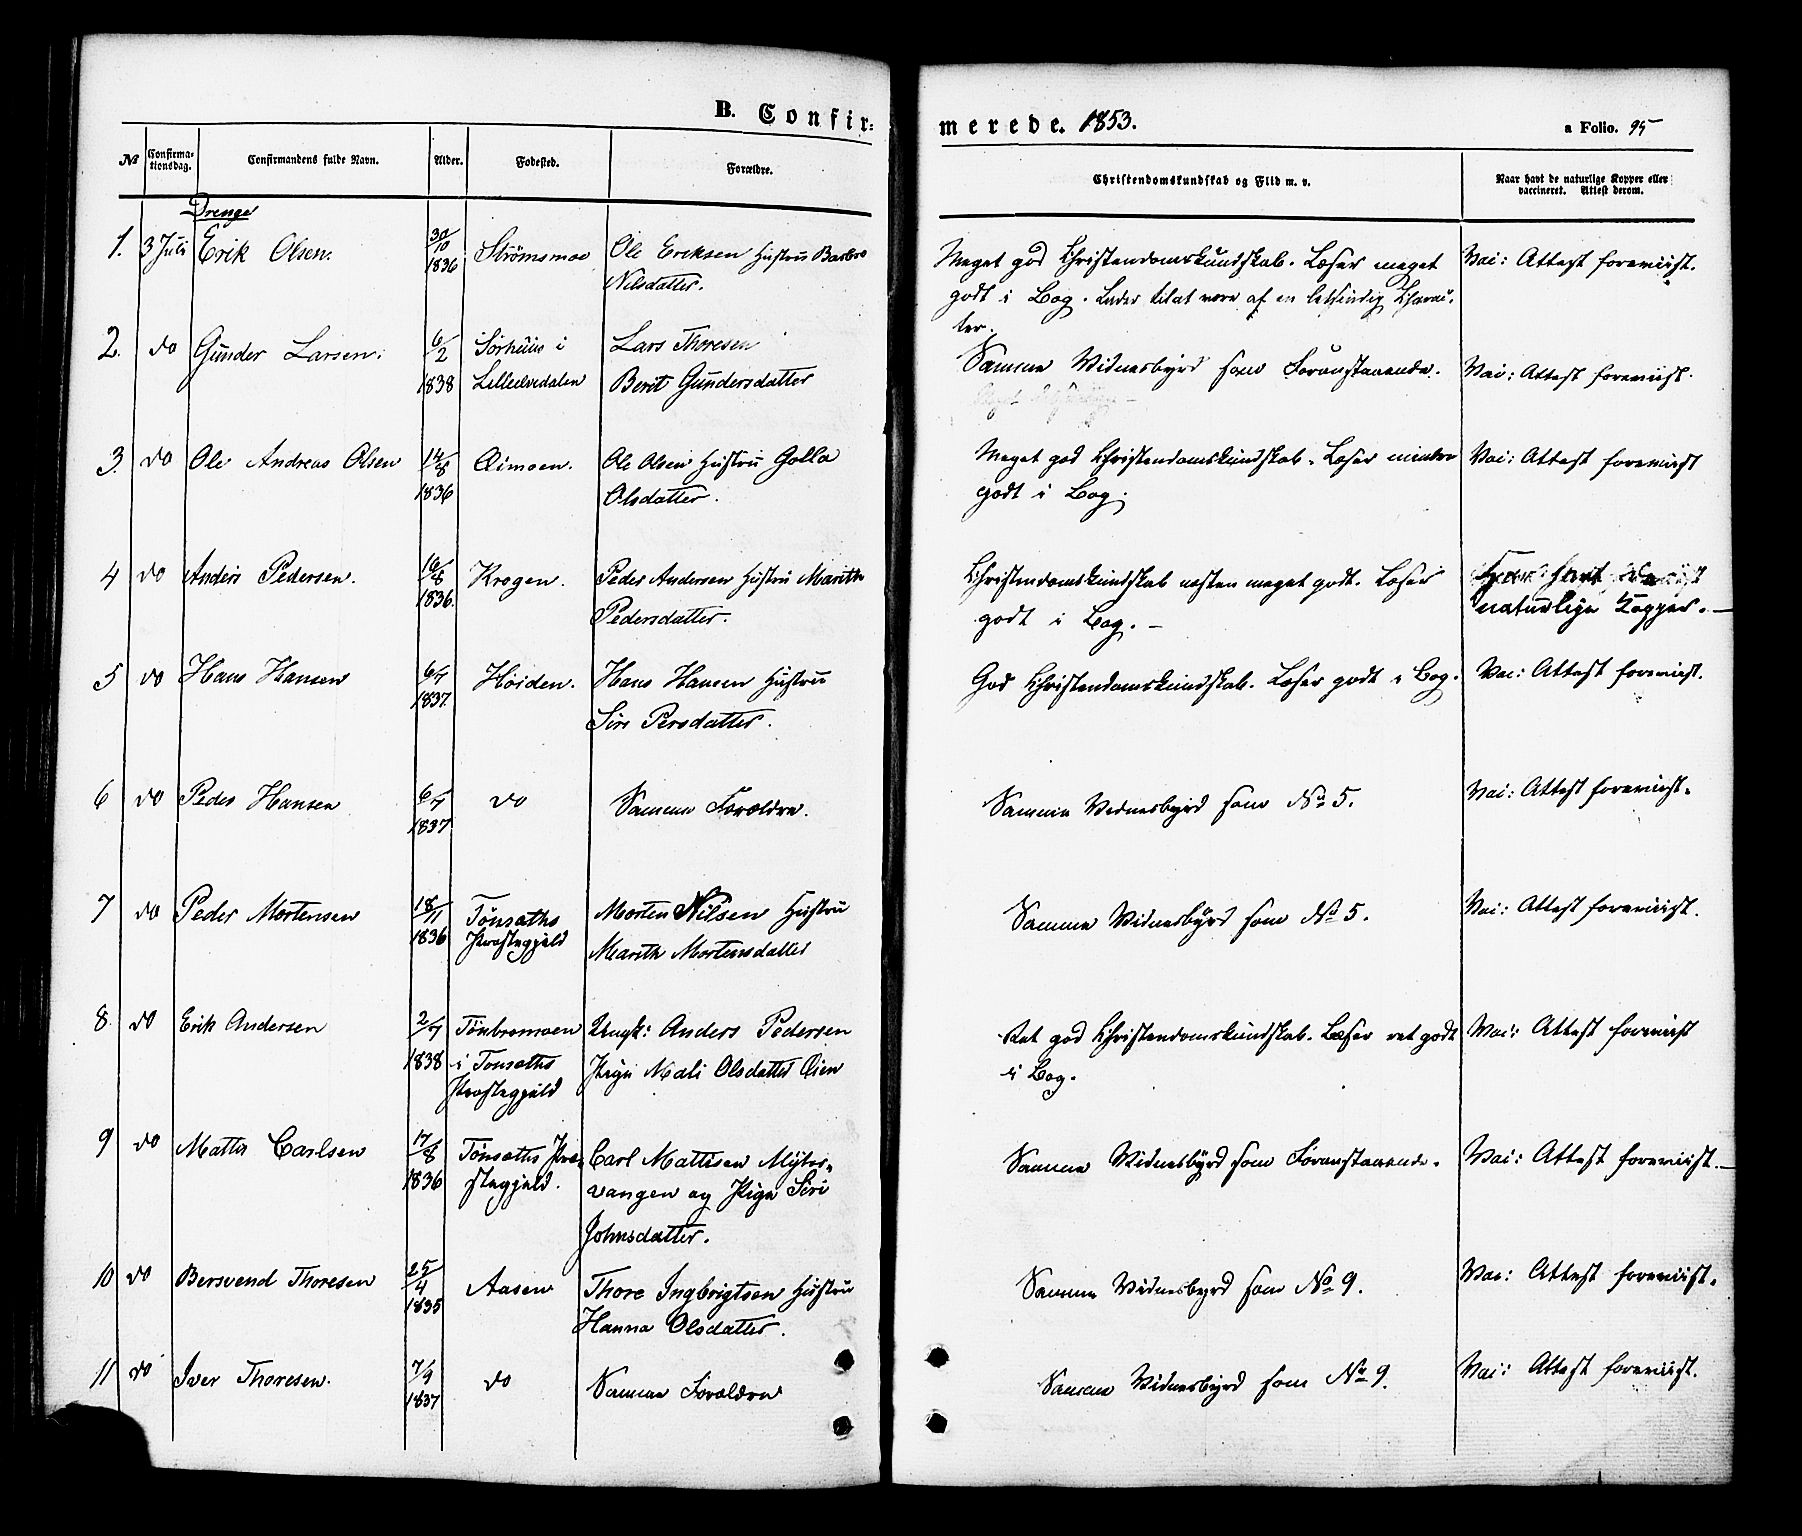 B. Confir=
merede. 1853.
a Folio. 95
№
Confirma-
tionsdag.
Confirmandens fulde Navn.
Alder.
Fødested.
Forældre.
Christendomskundskab og Flid m. v.
Naar havt de naturlige Kopper eller
vaccineret. Attest derom.
Drenge
1. 3 Juli Erik Olsen. 30/10 1836 Strømsmoe Ole Eriksen Hustru Barbro
Nilsdatter.
Meget god Christendomskundskab. Læser meget
godt i Bog. Lader tilat være af en letsindig Charac-
ter.
Vai: Attest foreviist.
2. do Gunder Larsen. 6/2 1838 Sørhuus i
Lilleelvedalen
Lars Thoresen
Berit Gundersdatter
Samme Vidnesbyrd som Foranstaaende.
Vai: Attest foreviist.
3. do Ole Andreas Olsen 14/8 1836 Eimoen. Ole Olsen Hustru Golla
Olsdatter.
Meget god Christendomskundskab. Læser mindre
godt i Bog.
Vai: Attest foreviist
4 do Anders Pedersen. 16/8 1836. Krogen. Peder Andersen Hustru Marith
Pedersdatter.
Christendomskundskab næsten meget godt. Læser
godt i Bog. —
havt
naturlige Kopper. —
5 do Hans Hansen 6/7 1837. Høiden. Hans Hansen Hustru
Siri Persdatter.
God Christendomskundskab. Læser godt i Bog.
Vac: Attest foreviist.
6 do Peder Hansen 6/7 1837 do Samme Forældre.
Samme Vidnesbyrd som No 5.
Vai: Attest foreviist.
7 do Peder Mortensen 18/11 1836 Tønsæths
Præstegjeld
Morten Nilsen Hustru
Marith Mortensdatter
Samme Vidnesbyrd som No 5.
Vai: Attest foreviist.
8. do Erik Andersen 2/7 1838 Tønbromoen
i Tonsæths
Præstegjeld
Ungk: Anders Pedersen
Pige Mali Olsdatter Eien
Ret god Christendomskundskab. Læser ret godt
i Bog.
Vai: Attest foreviist
9 do Mattis Carlsen 17/8 1836 Tønsæths Præ-
stegjeld.
Carl Mattisen
vangen og Pige Siri
Johnsdatter.
Samme Vidnesbyrd som Foranstaaende.
Vai: Attest foreviist. —
10 do Bersvend Thoresen 25/4 1835 Aasen Thore Ingbrigtsen Hustru
Hanna Olsdatter.
Samme Vidnesbyrd som No 9.
Vai: Attest foreviist.
11 do Iver Thoresen. 7/9 1837 do Samme Forældre
Samme Vidnesbyrd som No 9.
Vai: Attest foreviist.